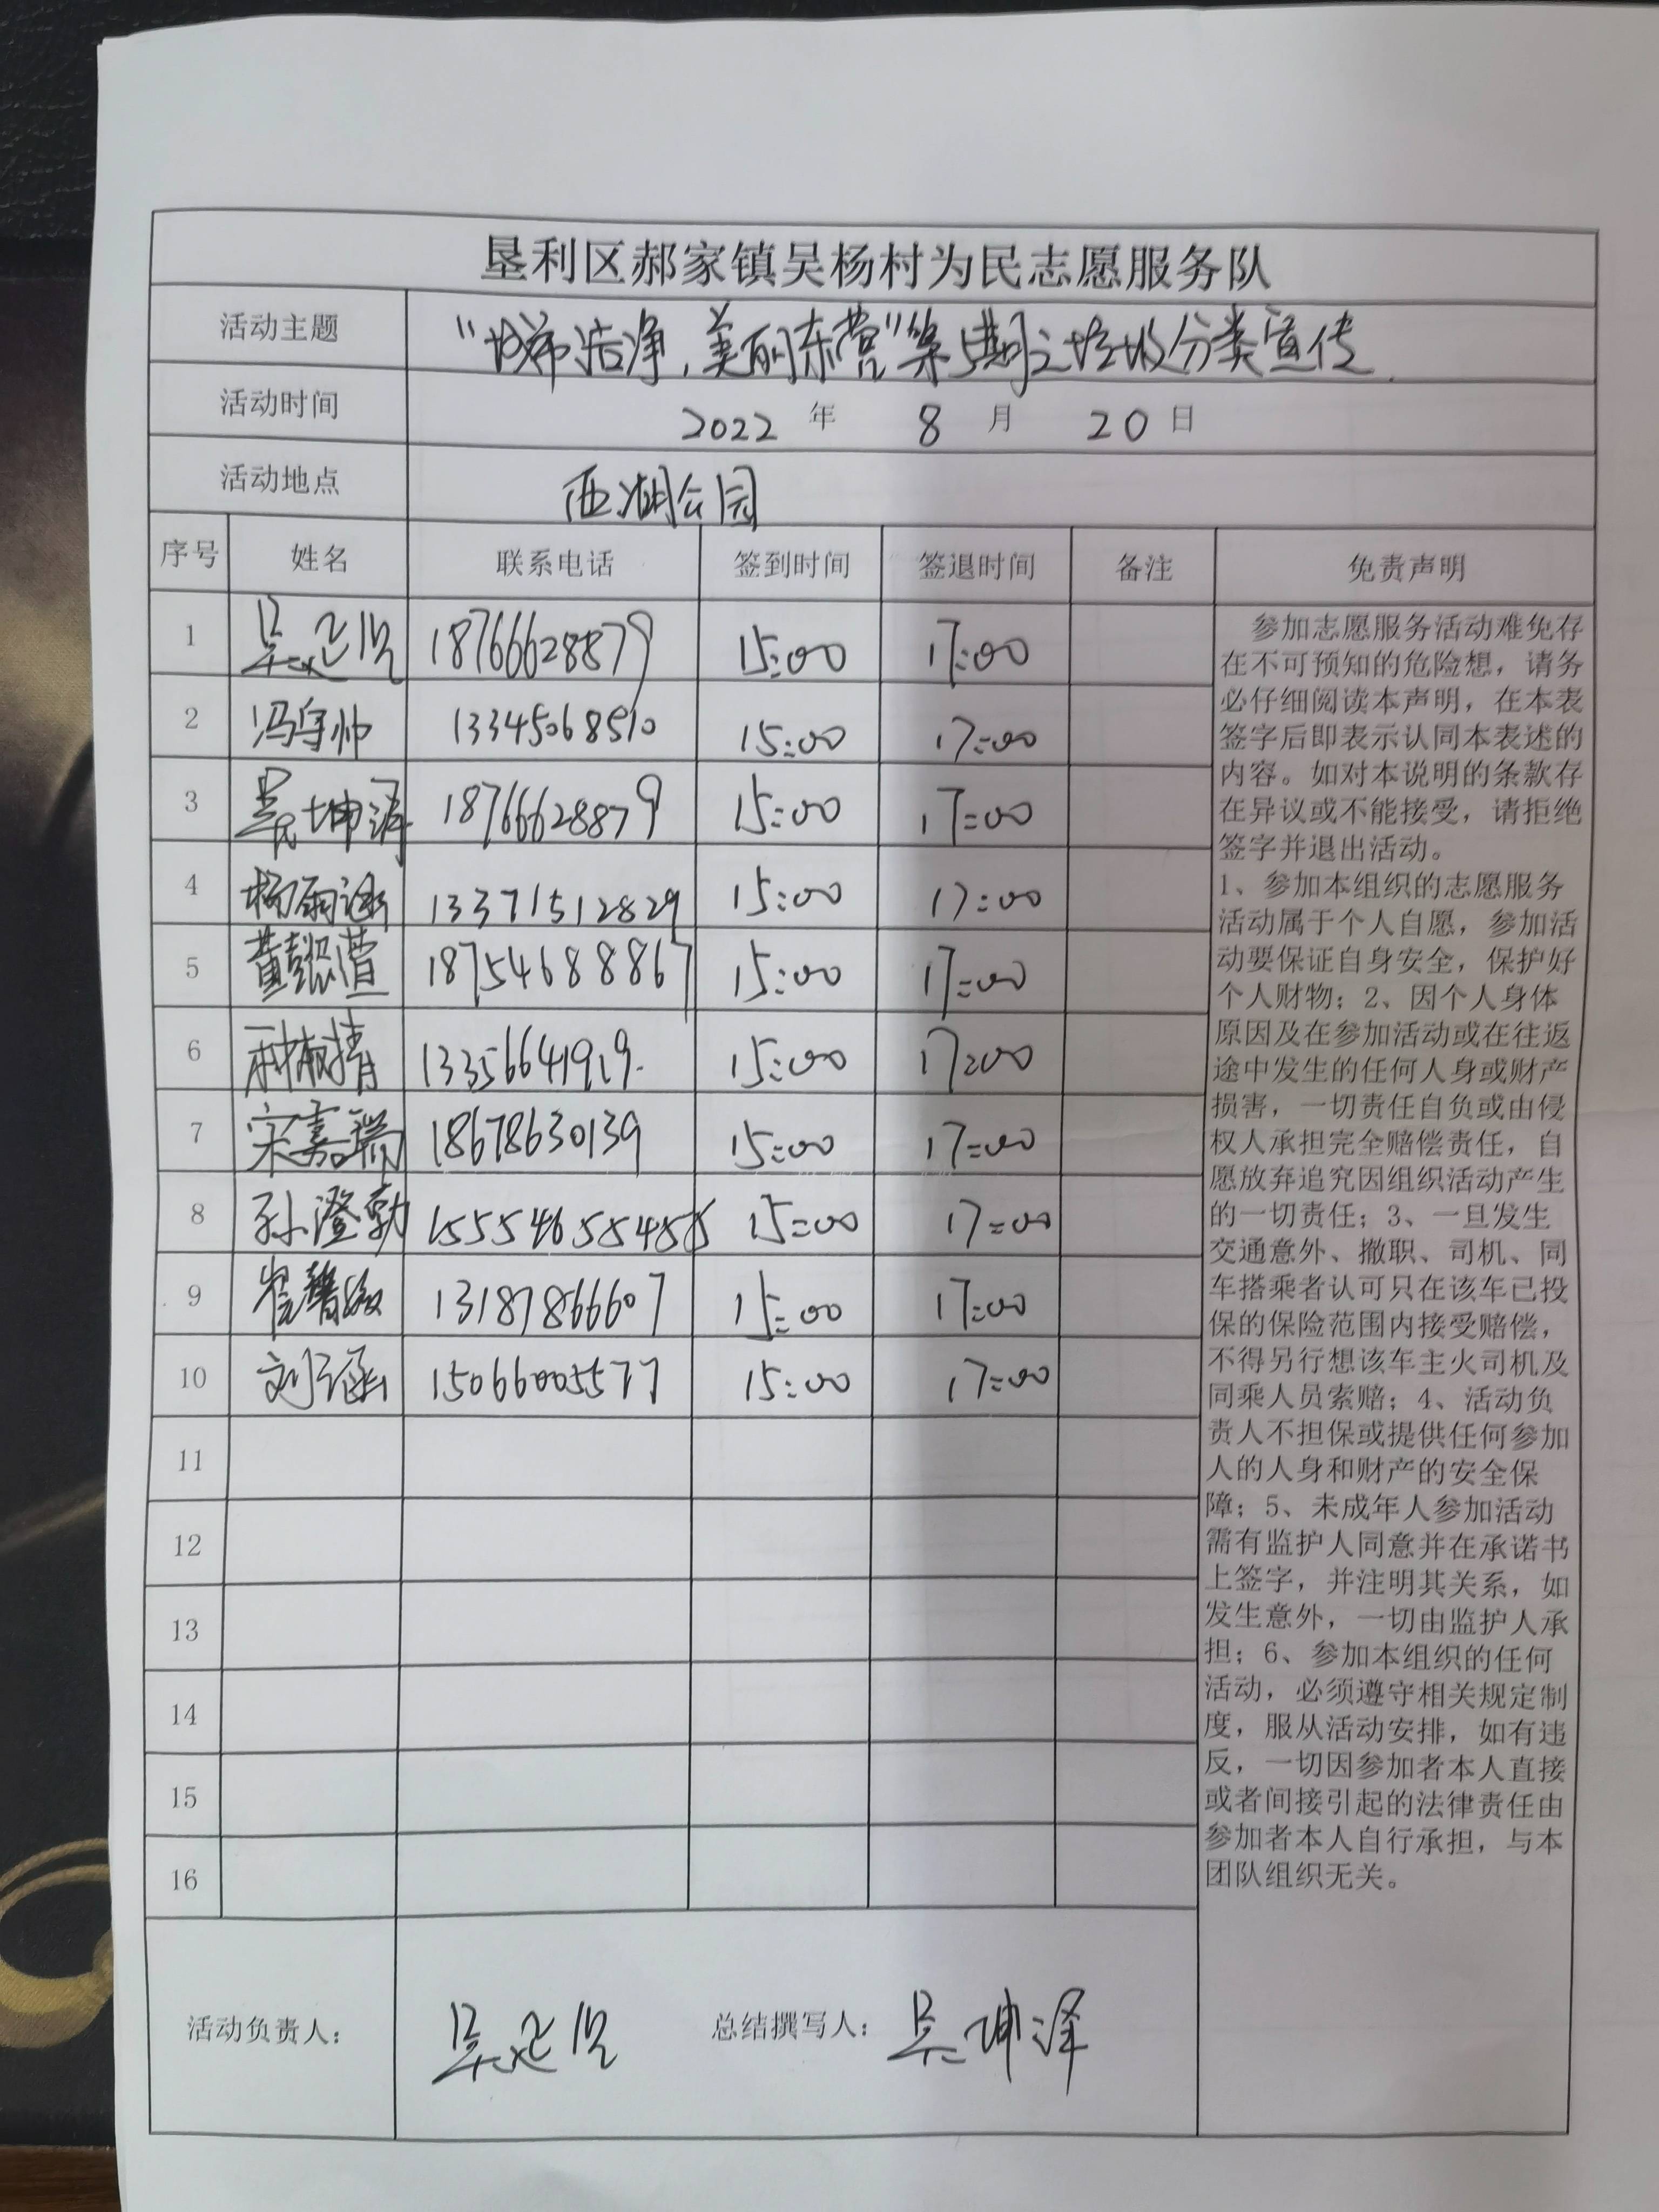 垦利区郝家镇吴杨村为民志愿服务队
活动主题 “城市洁净,美丽东营”第5期之垃圾分类宣传
活动时间 2022 年 8 月 20 日
活动地点 西湖公园
序号 姓名 联系电话 签到时间 签退时间 备注 免责声明
1 18766628879 15:00 17:00
2 冯守帅 13345068510 15:00 17:00
3 吴坤泽 18766628879 15:00 17:00
4 杨雨涵 13371512829 15:00 17:00
5 18754688867 15:00 17:00
6 13356641919. 15:00 17:00
7 宋嘉瑞 18678630139 15:00 17:00
8 孙澄勃 15:00 17:00
9 13187866607 15:00 17:00
10 15066005577 15:00 17:00
11
12
13
14
15
16
参加志愿服务活动难免存
在不可预知的危险想，请务
必仔细阅读本声明，在本表
签字后即表示认同本表述的
内容。如对本说明的条款存
在异议或不能接受，请拒绝
签字并退出活动。
1、参加本组织的志愿服务
活动属于个人自愿，参加活
动要保证自身安全，保护好
个人财物；2、因个人身体
原因及在参加活动或在往返
途中发生的任何人身或财产
损害，一切责任自负或由侵
权人承担完全赔偿责任，自
愿放弃追究因组织活动产生
的一切责任；3、一旦发生
交通意外、撤职、司机、同
车搭乘者认可只在该车已投
保的保险范围内接受赔偿，
不得另行想该车主火司机及
同乘人员索赔；4、活动负
责人不担保或提供任何参加
人的人身和财产的安全保
障；5、未成年人参加活动
需有监护人同意并在承诺书
上签字，并注明其关系，如
发生意外，一切由监护人承
担；6、参加本组织的任何
活动，必须遵守相关规定制
度，服从活动安排，如有违
反，一切因参加者本人直接
或者间接引起的法律责任由
参加者本人自行承担，与本
团队组织无关。
活动负责人： 总结撰写人：吴坤泽